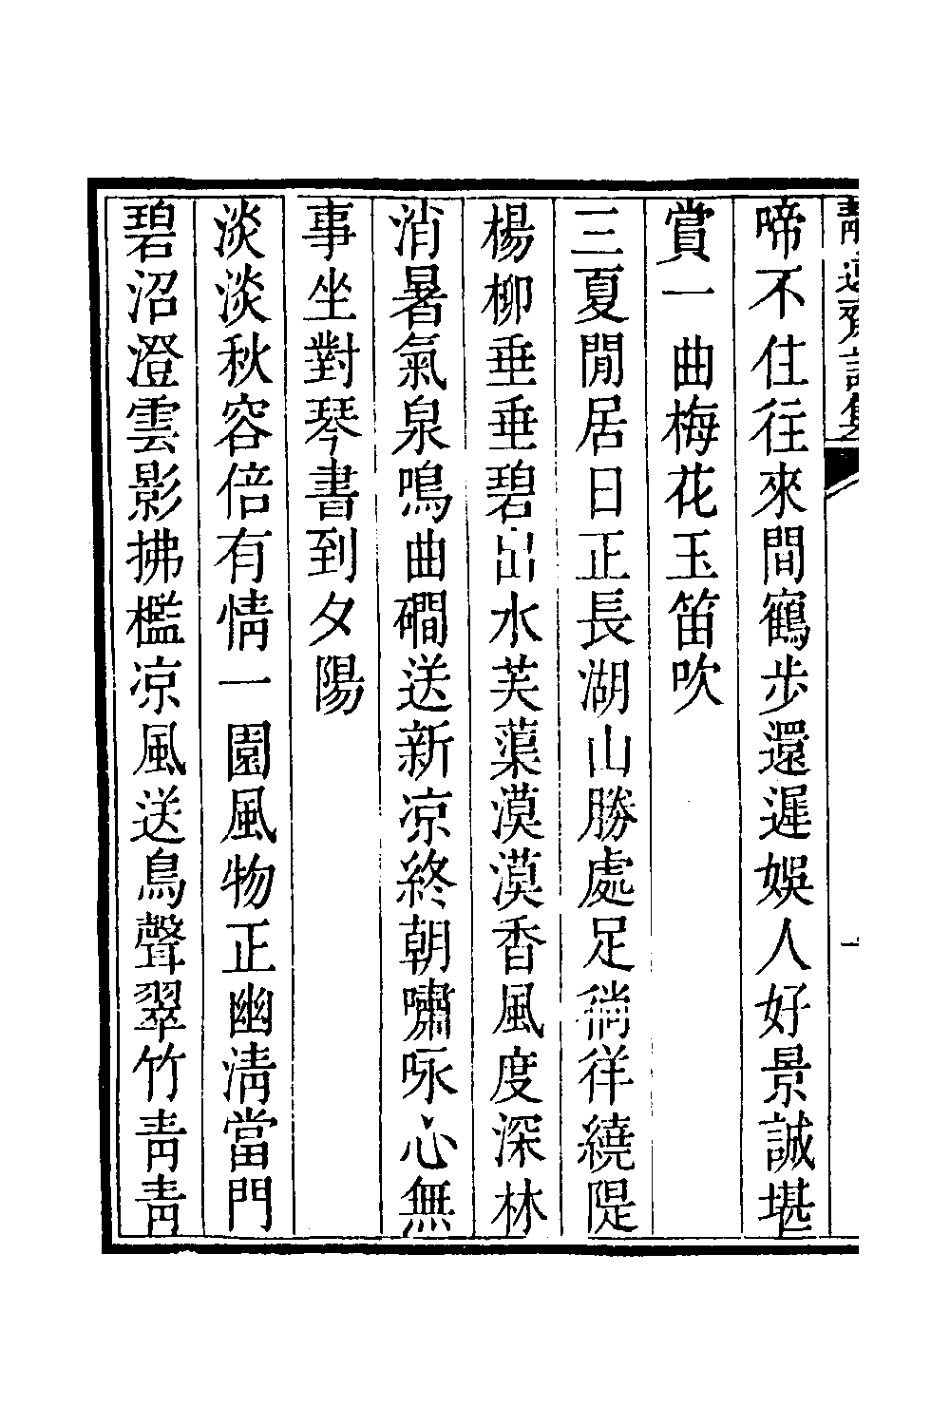 靜遠齋詩集
啼不住往來間鶴步還遲娛人好景誠堪
賞一曲梅花玉笛吹
三夏閒居日正長湖山勝處足徜徉繞隄
楊柳垂垂碧出水芙蕖漠漠香風度深林
消暑氣泉鳴曲磵送新凉終朝嘯咏心無
事坐對琴書到夕陽
淡淡秋容倍有情一園風物正幽淸當門
碧沼澄雲影拂檻凉風送鳥聲翠竹靑靑